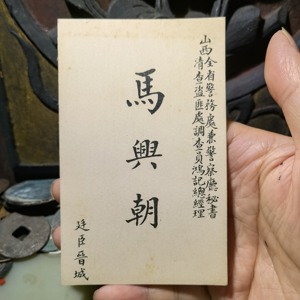 山西全省警務處兼警察廳秘書
清查盜匪處調查員鴻記總經理
馬興朝
廷臣晉城